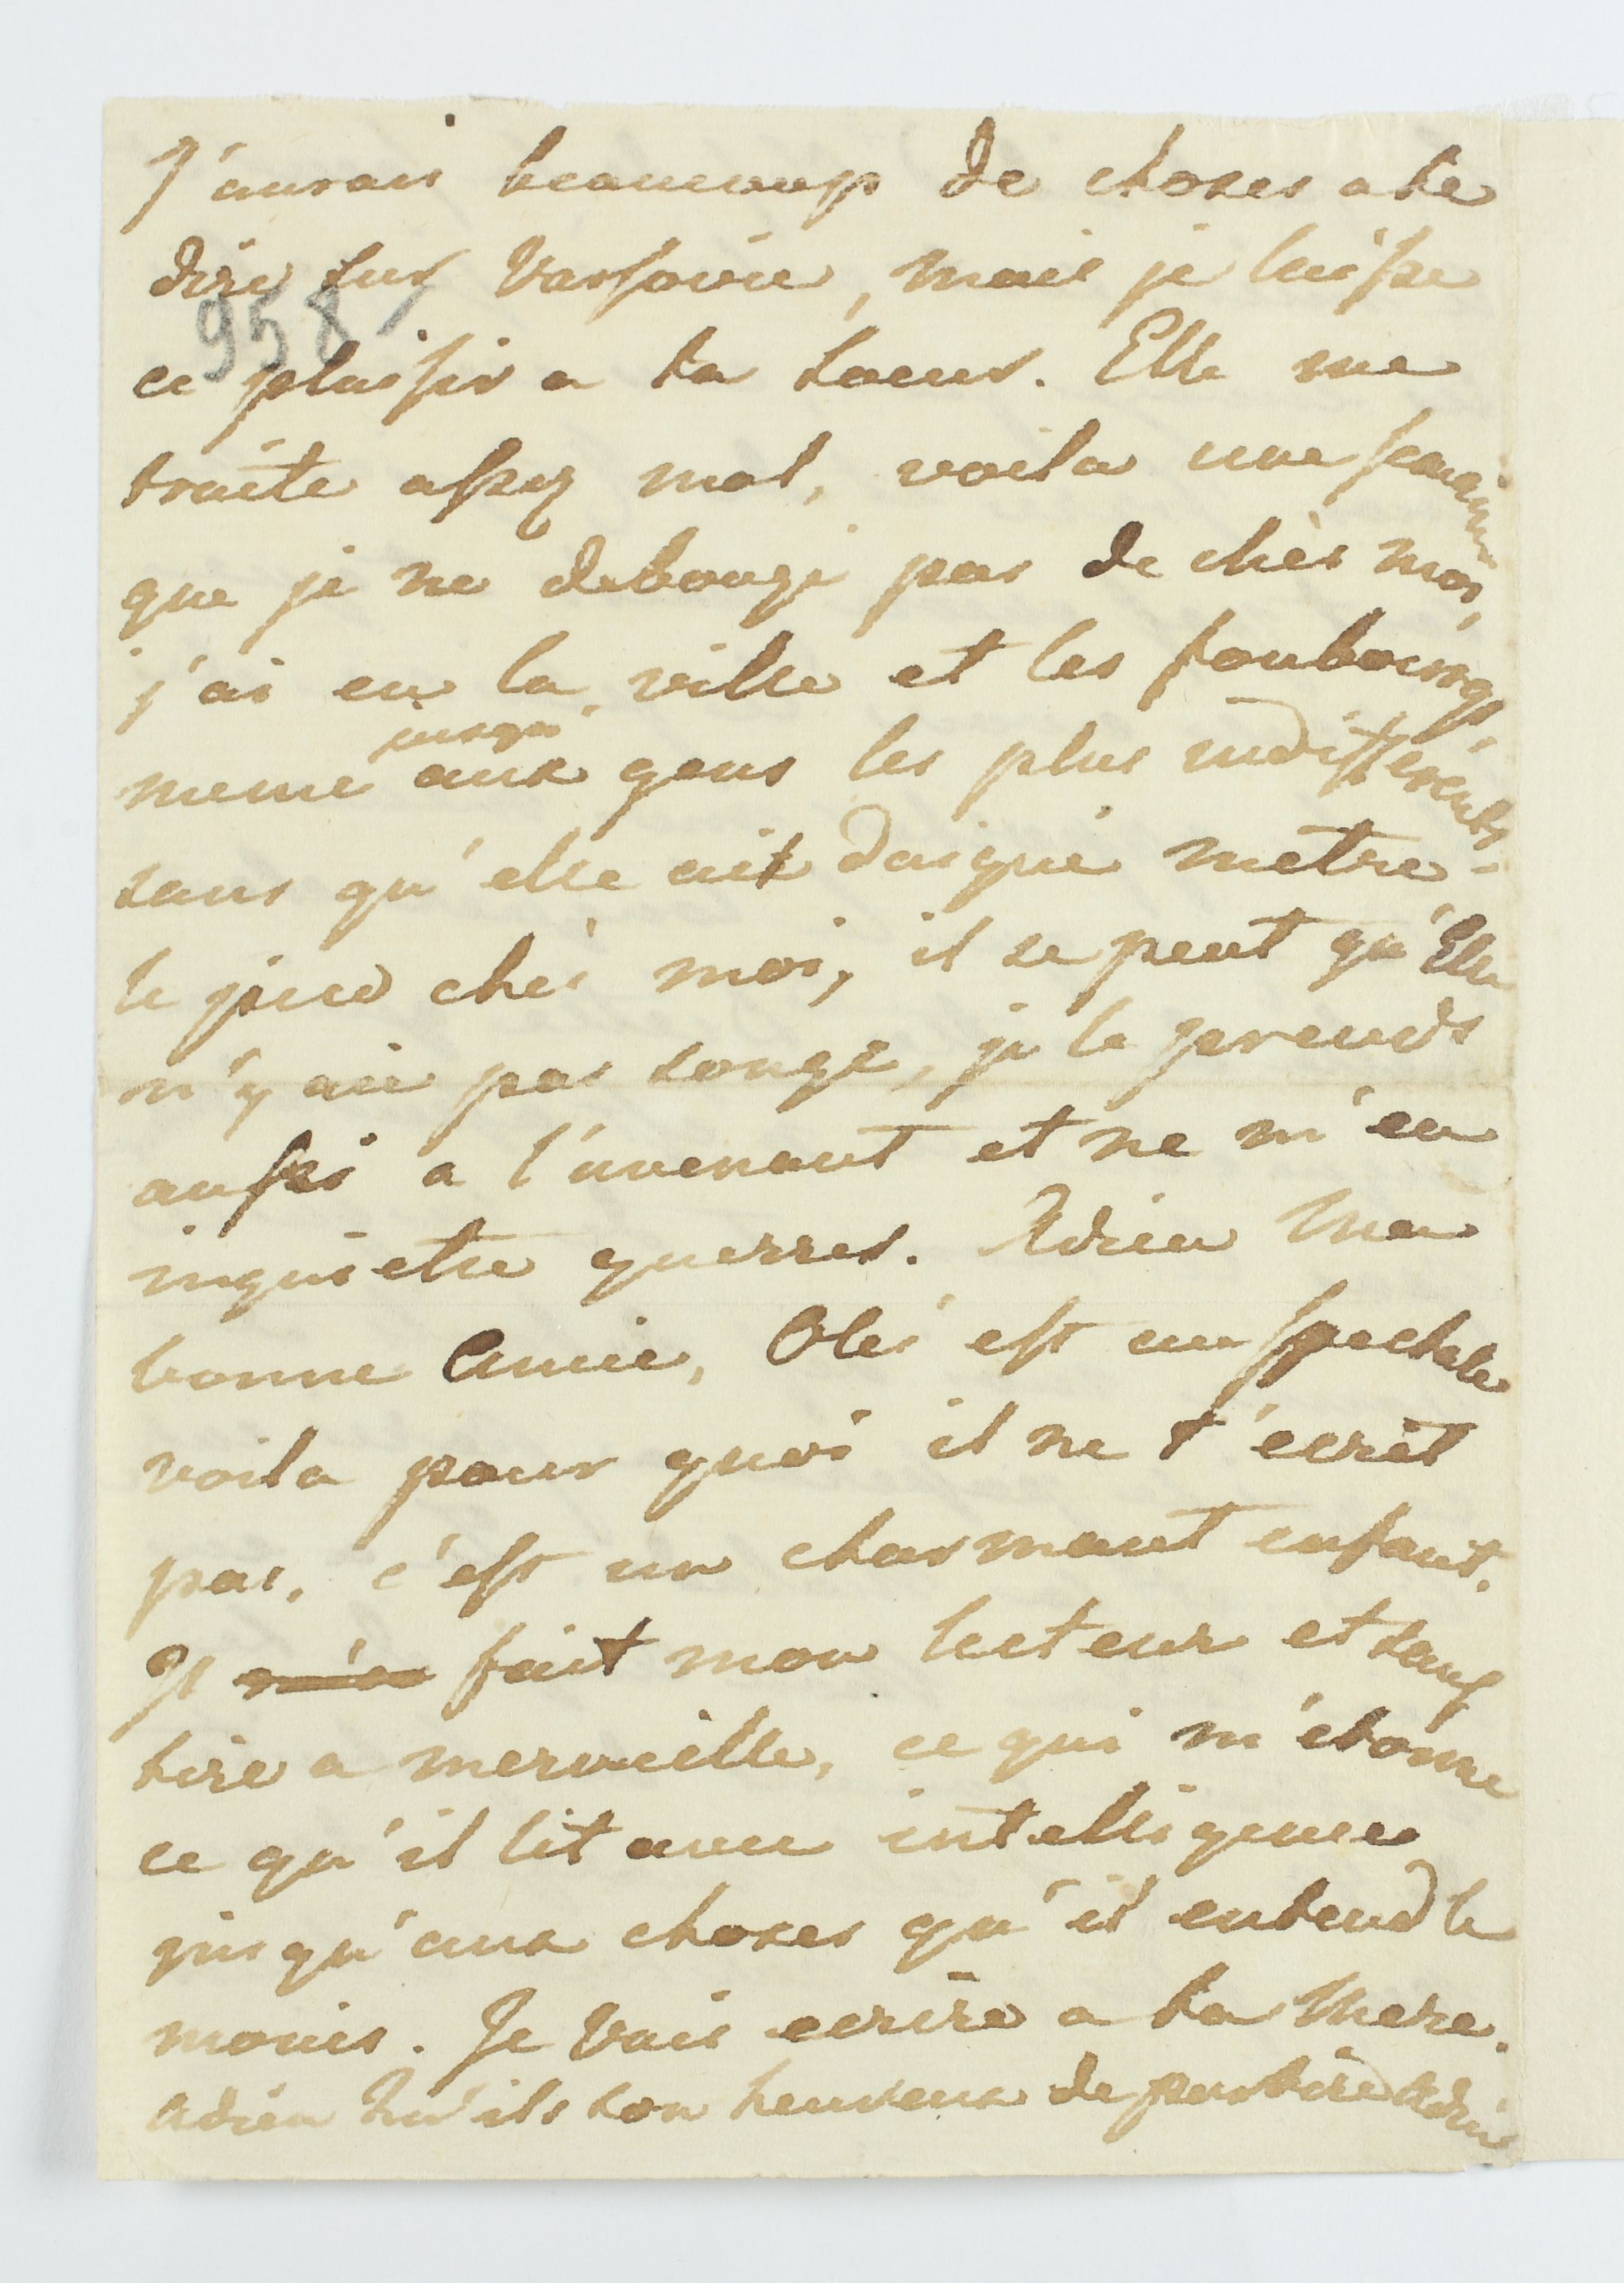 J'aurais beaucoup de choses a te
dire sur Varsovie, mais je laisse
958
ce plaisir a ta soeur. Elle me
traite assez mal, voila une semaine
que je ne debouge pas de chès moi,
j'ai eu la ville et les foubourgs,
jusqu'
meme aux gens les plus indifferents,
sans qu'elle ait daigné metre
le pied chès moi, il se peut qu'Elle
n'y aie pas songé, je le prends
aussi a l'avenant et ne m'en
inquiette guerres. Adieu Ma
bonne Amie, Oleś est au spectale
voila pour quoi il ne t'ecrit
pas, c'est un charmant enfant.
Il m'a fait mon lecteur et s'en
tire a merveille, ce qui m'étonne
ce qu'il lit avec intelligence
jusqu'aux choses qu'il entend le
moins. Je Vais ecrire a ta Mere.
Adieu Qu'ils son heureux de partire Adieu